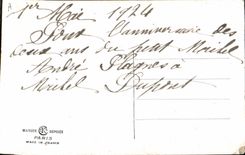 1er Mai 1924
Pour l'anniversaire des
deux ans du petit Michel
André Plagnes à
Michel Dupont
MARQUE DEPOSEE
PARIS
MADE IN FRANCE